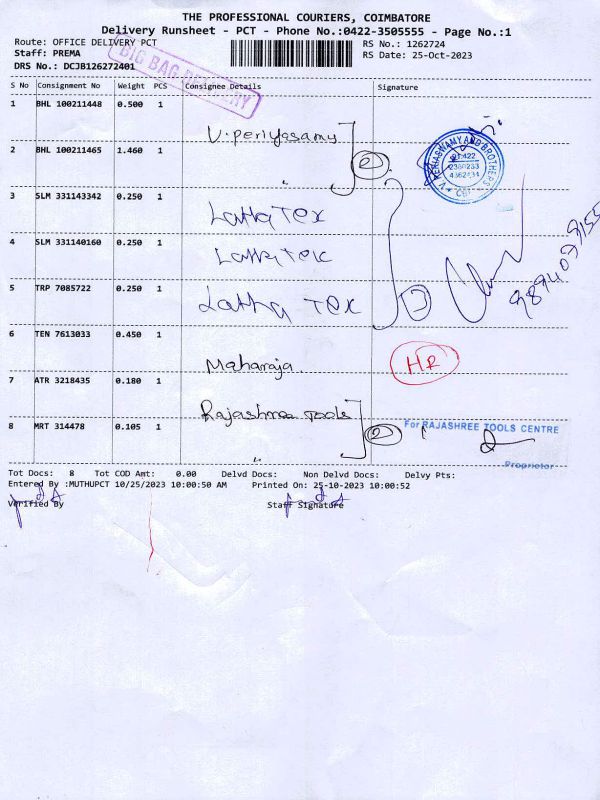 THE PROFESSIONAL COURIERS, COIMBATORE
Delivery Runsheet - PCT - Phone No.:0422-3505555 - Page No.:1
Route: OFFICE DELIVERY PCT RS No.: 1262724
Staff: PREMA RS Date: 25-Oct-2023
DRS No.: DCJB126272401
BIG BAG DELIVERY
S No Consignment No Weight PCS Consignee Details Signature
1 BHL 100211448 0.500 1
V. periyasamy
2 BHL 100211465 1.460 1 " 2
V. PERIASWAMY AND BROTHERS
0422
CBE
3 SLM 331143342 0.250 1
Latha Tex
4 SLM 331140160 0.250 1
Latha Tex
5 TRP 7085722 0.250 1 Latha Tex 3
6 TEN 7613033 0.450 1
Maharaja HR
7 ATR 3218435 0.180 1
Rajashree Tools
8 MRT 314478 0.105 1 2
For RAJASHREE TOOLS CENTRE
"
Proprietor
Tot Docs: 8 Tot COD Amt: 0.00 Delvd Docs: Non Delvd Docs: Delvy Pts:
Entered By :MUTHUPCT 10/25/2023 10:00:50 AM Printed On: 25-10-2023 10:00:52
Verified By Staff Signature